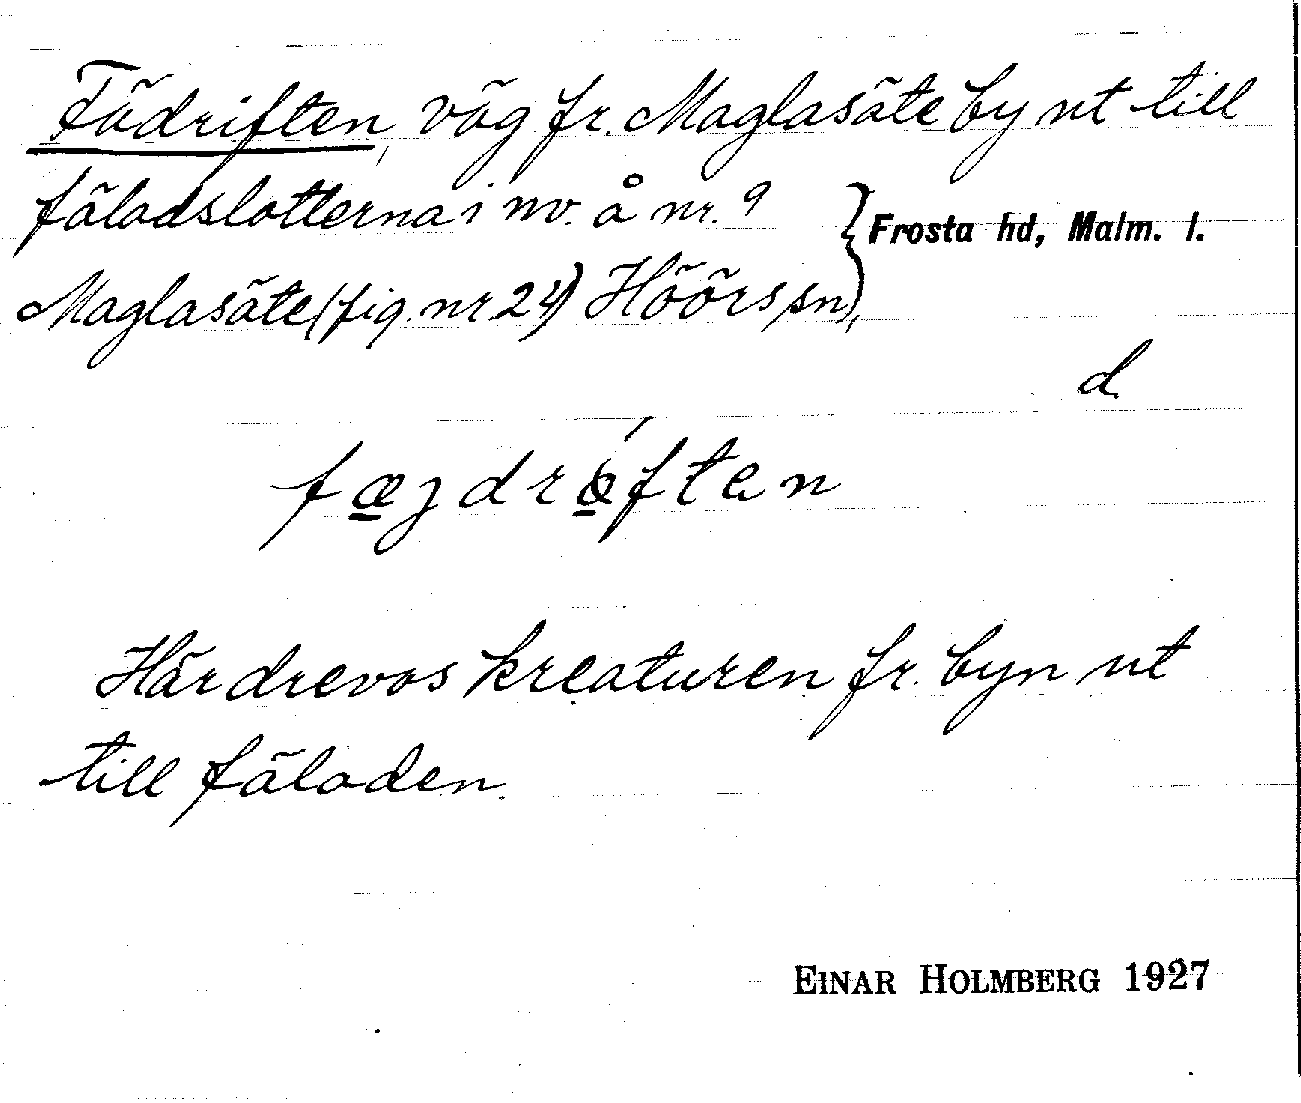 Fädriften, väg fr. Maglasäte by ut till
fäladslotterna i nv. å nr. 9
Maglasäte (fig. nr 24) Höörs sn), } Frosta hd, Malm. l.
d
fæjdræ̀ften
Här drevos kreaturen fr. byn ut
till fäladen.
EINAR HOLMBERG 1927